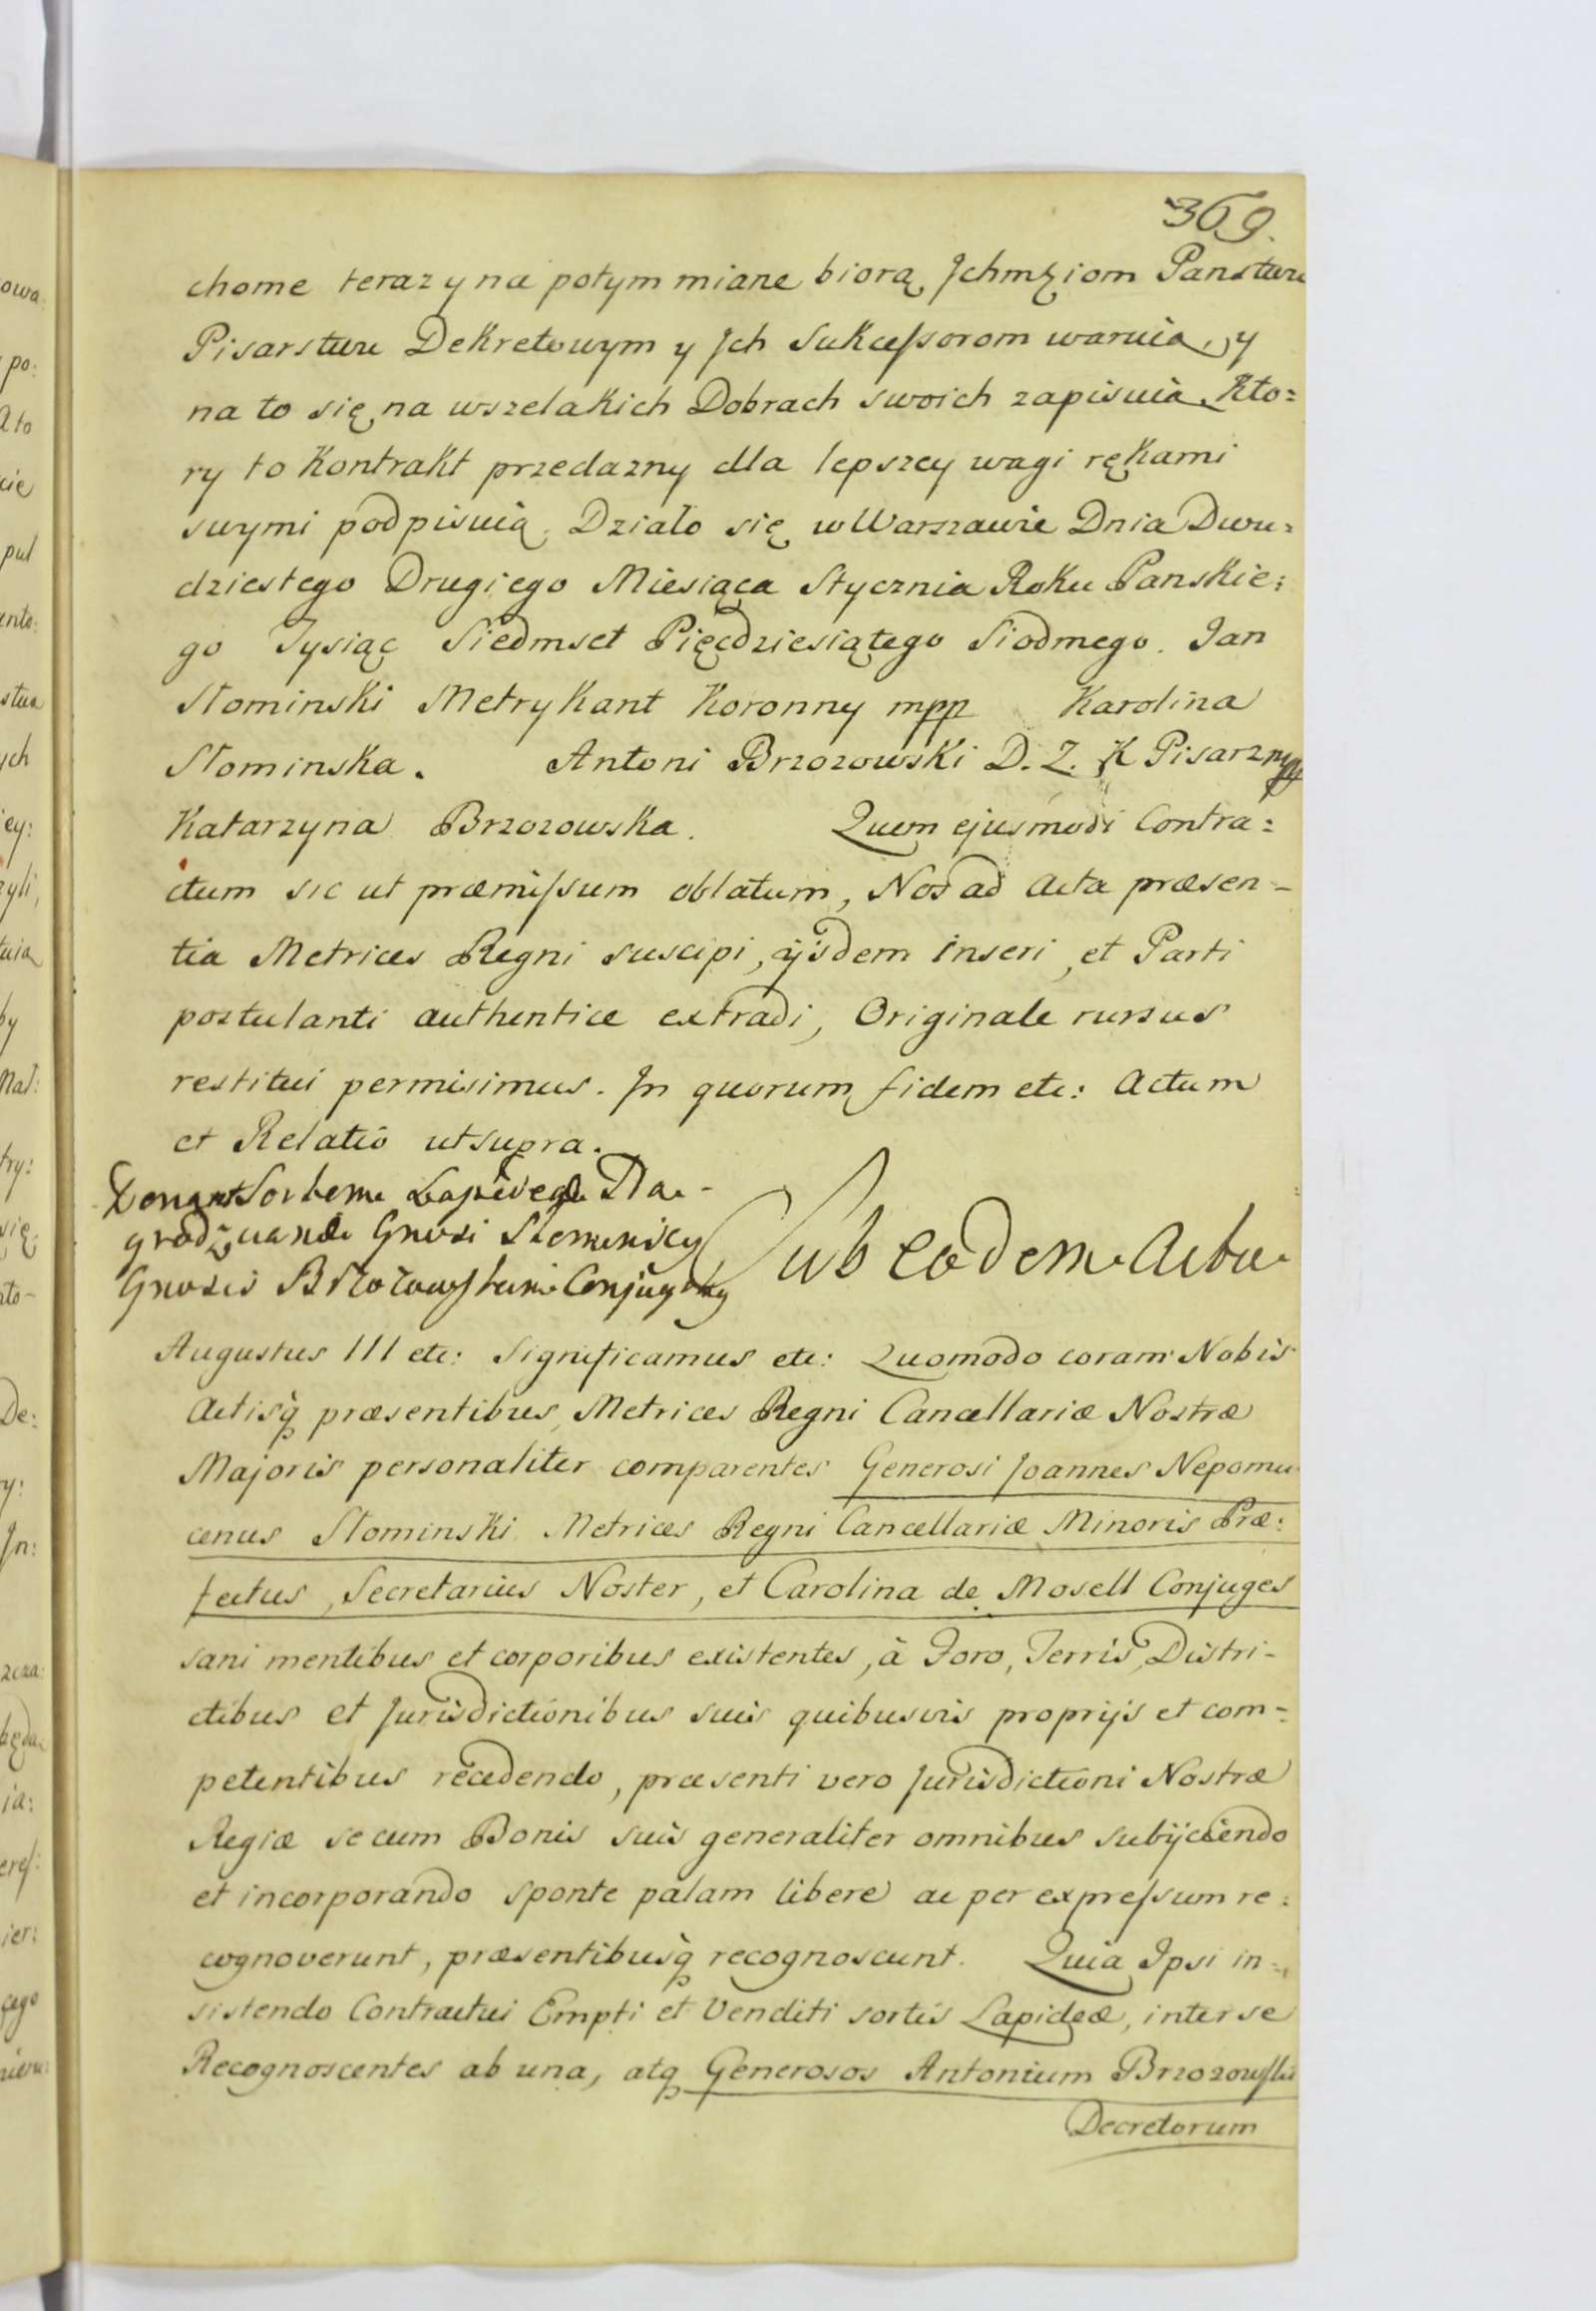 369.
chome teraz y na potym miane biorą, Jchmćiom Panstwu
Pisarstwu Dekretowym y Jch Sukceſsorom waruią, y
na to się na wszelakich Dobrach swoich zapisuią. Kto=
ry to Kontrakt przedazny dla lepszey wagi rękami
swymi podpisuią. Działo się w Warszawie Dnia Dwu=
dziestego Drugiego Miesiąca Stycznia Roku Panskie:
go Tysiąc Siedmset Pięcdziesiątego Siodmego. Jan
Słominski Metrykant Koronny mpp Karolina
Słominska. Antoni Brzozowski D. Z. K Pisarz mpp
Katarzyna Brzozowska. Quem ejusmodi Contra=
ctum sic ut præmiſsum oblatum, Nos ad Acta præsen-
tia Metrices Regni suscipi, ijsdem inseri, et Parti
postulanti authentice extradi, Originale rursus
restitui permisimus. Jn quorum fidem etc: Actum
et Relatio ut supra.
gnosi Slominscy
Gnosis Conjugibus
Sub eodem Actu
Augustus III etc: Significamus etc: Quomodo coram Nobis
Actisq̃ præsentibus Metrices Regni Cancellariæ Nostræ
Majoris personaliter comparentes Generosi Joannes Nepomu
cenus Słominski Metrices Regni Cancellariæ Minoris Præ:
fectus, Secretarius Noster, et Carolina de Mosell Conjuges
sani mentibus et corporibus existentes, à Foro, Terris, Distri-
ctibus et Jurisdictionibus suis quibusvis proprijs et com=
petentibus recedendo, præsenti vero Jurisdictioni Nostræ
Regiæ se cum Bonis suis generaliter omnibus subijciendo
et incorporando sponte palam libere ac per expreſsum re:
cognoverunt, præsentibusq̃ recognoscunt. Quia Ipsi in=
sistendo Contractui Empti et Venditi sortis Lapideæ, inter se
Recognoscentes ab una, atq̃ Generosos Antonium Brzozowſki
Decretorum